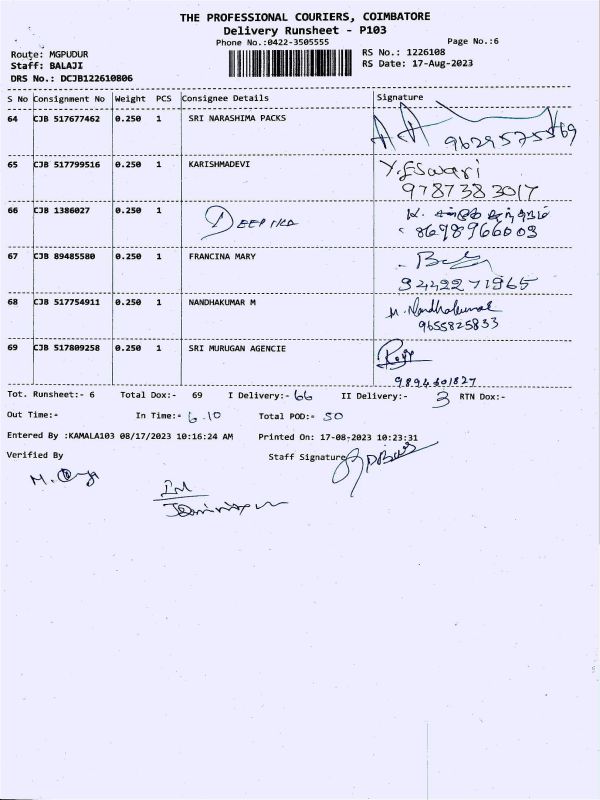 THE PROFESSIONAL COURIERS, COIMBATORE
Delivery Runsheet - P103
Phone No.:0422-3505555
Page No.:6
Route: MGPUDUR
RS No.: 1226108
Staff: BALAJI
RS Date: 17-Aug-2023
DRS No.: DCJB122610806
S No Consignment No Weight PCS Consignee Details Signature
64 CJB 517677462 0.250 1 SRI NARASHIMA PACKS
9629575569
65 CJB 517799516 0.250 1 KARISHMADEVI Y.ESwari
9787383017
66 CJB 1386027 0.250 1 DEEPIKA
8698966003
67 CJB 89485580 0.250 1 FRANCINA MARY
9442271965
68 CJB 517754911 0.250 1 NANDHAKUMAR M M. Nandhakumar
9655825833
69 CJB 517809258 0.250 1 SRI MURUGAN AGENCIE
9894601827
Tot. Runsheet:- 6 Total Dox:- 69 I Delivery:- 66 II Delivery:- 3 RTN Dox:-
Out Time:- In Time:- 6.10 Total POD:- 50
Entered By :KAMALA103 08/17/2023 10:16:24 AM Printed On: 17-08-2023 10:23:31
Verified By Staff Signature